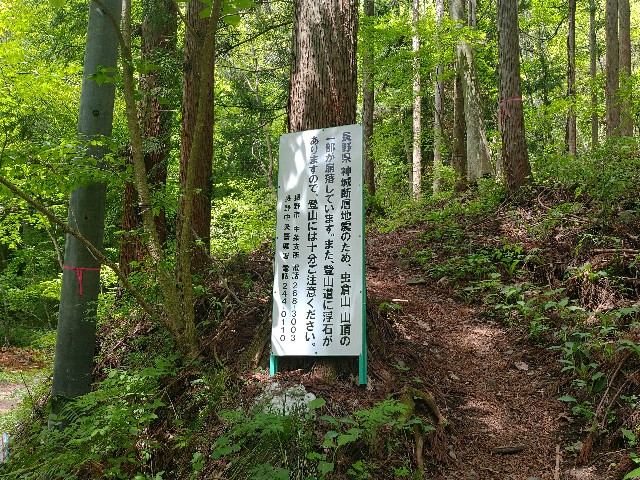 長野県 神城断層地震のため、虫倉山 山頂の
一部が崩落しています。また、登山道に浮石が
ありますので、登山には十分ご注意ください。
長野市 中条支所 電話 268-3003
長野中央警察署 電話 244-0110